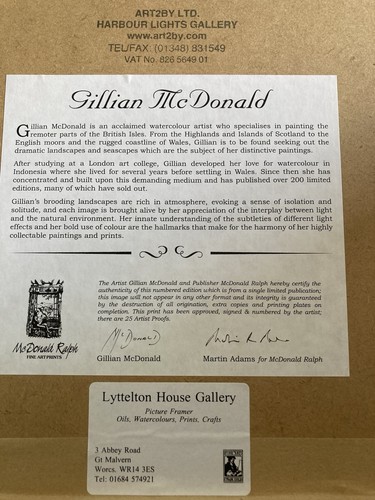 ART2BY LTD.
HARBOUR LIGHTS GALLERY
www.art2by.com
TEL/FAX: (01348) 831549
VAT No. 826 5649 01
Gillian McDonald
Gillian McDonald is an acclaimed watercolour artist who specialises in painting the
remoter parts of the British Isles. From the Highlands and Islands of Scotland to the
English moors and the rugged coastline of Wales, Gillian is to be found seeking out the
dramatic landscapes and seascapes which are the subject of her distinctive paintings.
After studying at a London art college, Gillian developed her love for watercolour in
Indonesia where she lived for several years before settling in Wales. Since then she has
concentrated and built upon this demanding medium and has published over 200 limited
editions, many of which have sold out.
Gillian's brooding landscapes are rich in atmosphere, evoking a sense of isolation
and solitude, and each image is brought alive by her appreciation of the interplay between light
and the natural environment. Her innate understanding of the subtleties of different light
effects and her bold use of colour are the hallmarks that make for the harmony of her highly
collectable paintings and prints.
The Artist Gillian McDonald and Publisher McDonald Ralph hereby certify the
authenticity of this numbered edition which is from a single limited publication;
this image will not appear in any other format and its integrity is guaranteed
by the destruction of all origination, extra copies and printing plates on
completion. This print has been approved, signed & numbered by the artist;
there are 25 Artist Proofs.
McDonald Ralph
FINE ART PRINTS
McDonald
Gillian McDonald
Martin Adams for McDonald Ralph
Lyttelton House Gallery
Picture Framer
Oils, Watercolours, Prints, Crafts
3 Abbey Road
Gt Malvern
Worcs. WR14 3ES
Tel: 01684 574921